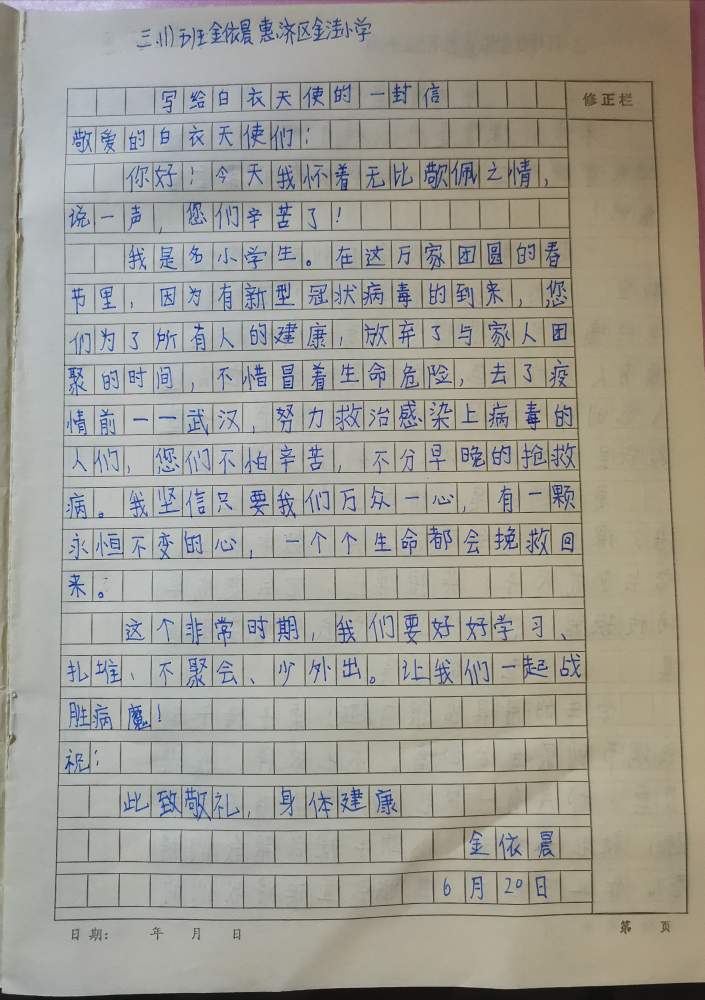 三.(1)班金依晨 惠济区金洼小学
写给白衣天使的一封信
修正栏
敬爱的白衣天使们:
你好!今天我怀着无比敬佩之情,
说一声,您们辛苦了!
我是名小学生。在这万家团圆的春
节里,因为有新型冠状病毒的到来,您
们为了所有人的建康,放弃了与家人团
聚的时间,不惜冒着生命危险,去了疫
情前一一武汉,努力救治感染上病毒的
人们,您们不怕辛苦,不分早晚的抢救
病。我坚信只要我们万众一心,有一颗
永恒不变的心,一个个生命都会挽救回
来。
这个非常时期,我们要好好学习、
扎堆、不聚会、少外出。让我们一起战
胜病魔!
祝:
此致敬礼,身体建康
金依晨
6月20日
日期: 年 月 日
第 页